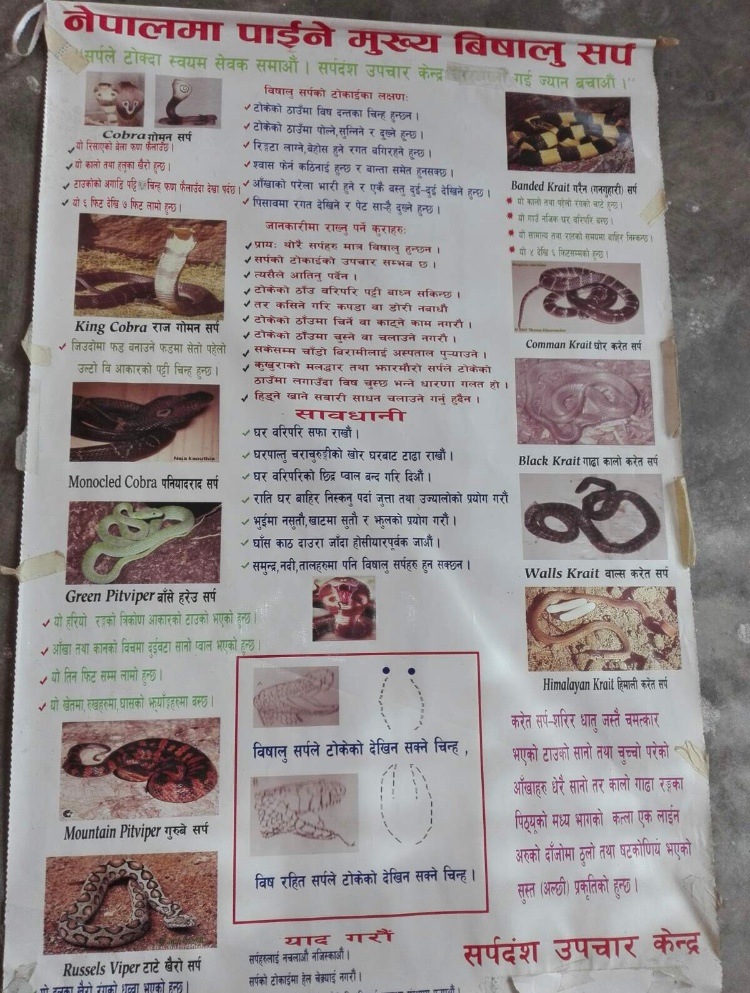 नेपालमा पाईने मुख्य बिषालु सर्प
"सर्पले टोक्दा स्वयम सेवक समाऔं । सर्पदंश उपचार केन्द्र गई ज्यान बचाऔं ।"
Cobra गोमन सर्प
यो रिसाएको बेला फणा फैलाउँछ।
यो कालो तथा हलुका खैरो हुन्छ।
टाउकोको अगाडि पट्टि चिन्ह फणा फैलाउँदा देखा पर्दछ।
यो ६ फिट देखि ७ फिट लामो हुन्छ।
King Cobra राज गोमन सर्प
जिउदोमा फड बनाउने फडमा सेतो पहेलो
उल्टो वि आकारको पट्टी चिन्ह हुन्छ।
Naja Kaouthia
Monocled Cobra पनियादराद सर्प
Green Pitviper बाँसे हरेउ सर्प
यो हरियो रङको त्रिकोण आकारको टाउको भएको हुन्छ।
आँखा तथा कानको विचमा दुईवटा सानो प्वाल भएको हुन्छ।
यो तिन फिट सम्म लामो हुन्छ।
यो खेतमा, रुखहरुमा, घासको झ्याँङहरुमा बस्छ।
Mountain Pitviper गुरुबे सर्प
Russels Viper टाटे खैरो सर्प
विषालु सर्पको टोकाईका लक्षणः
टोकेको ठाउँमा विष दन्तका चिन्ह हुन्छन।
टोकेको ठाउँमा पोल्ने, सुन्निने र दुख्ने हुन्छ।
रिङटा लाग्ने, बेहोस हुने रगत बगिरहने हुन्छ।
श्वास फेर्न कठिनाई हुन्छ र बान्ता समेत हुनसक्छ।
आँखाको परेला भारी हुने र एकै बस्तु दुई-दुई देखिने हुन्छ।
पिसावमा रगत देखिने र पेट साह्रै दुख्ने हुन्छ।
जानकारीमा राख्नु पर्ने कुराहरुः
प्रायः थोरै सर्पहरु मात्र विषालु हुन्छन।
सर्पको टोकाईको उपचार सम्भव छ।
त्यसैले आतिनु पर्दैन।
टोकेको ठाउँ वरिपरि पट्टी बाध्न सकिन्छ।
तर कसिने गरि कपडा वा डोरी नबाधौं
टोकेको ठाउँमा चिर्ने वा काट्ने काम नगरौं।
टोकेको ठाउँमा चुस्ने वा चलाउने नगरौं।
सकेसम्म चाँडो बिरामीलाई अस्पताल पुऱ्याउने।
कुखुराको मलद्वार तथा झारमौरो सर्पले टोकेको
ठाउँमा लगाउँदा विष चुस्छ भन्ने धारणा गलत हो।
हिड्ने खाने सवारी साधन चलाउने गर्नु हुदैन।
सावधानी
घर वरिपरि सफा राखौं।
घरपालु चराचुरुङीको खोर घरबाट टाढा राखौं।
घर वरिपरिको छिद्र प्वाल बन्द गरि दिऔं।
राति घर बाहिर निस्कनु पर्दा जुत्ता तथा उज्यालोको प्रयोग गरौं
भुईमा नसुतौ, खाटमा सुतौ र झुलको प्रयोग गरौं।
घाँस काठ दाउरा जाँदा होसीयारपूर्वक जाऔं।
समुन्द्र, नदी, तालहरुमा पनि विषालु सर्पहरु हुन सक्छन।
विषालु सर्पले टोकेको देखिन सक्ने चिन्ह,
विष रहित सर्पले टोकेको देखिन सक्ने चिन्ह।
याद गरौं
सर्पहरुलाई नचलाऔ नजिस्काऔं।
Banded Krait गरैन (गनगुहारी) सर्प
यो कालो तथा पहेलो रंगको पाटे हुन्छ।
यो गाउँ नजिक घर वरिपरि बस्छ।
यो सामान्य तथा रातको समयमा बाहिर निस्कन्छ।
यो ४ देखि ६ फिटसम्मको हुन्छ।
Comman Krait घोर करेत सर्प
Black Krait गाढा कालो करेत सर्प
Walls Krait वाल्स करेत सर्प
Himalayan Krait हिमाली करेत सर्प
करेत सर्प-शरिर धातु जस्तै चमत्कार
भएको टाउको सानो तथा चुच्चो परेको
आँखाहरु धेरै सानो तर कालो गाढा रङका
पिठ्यूको मध्य भागको कत्ला एक लाईन
अरुको दाँजोमा ठुलो तथा षटकोणियं भएको
सुस्त (अल्छी) प्रकृतिको हुन्छ।
सर्पदंश उपचार केन्द्र